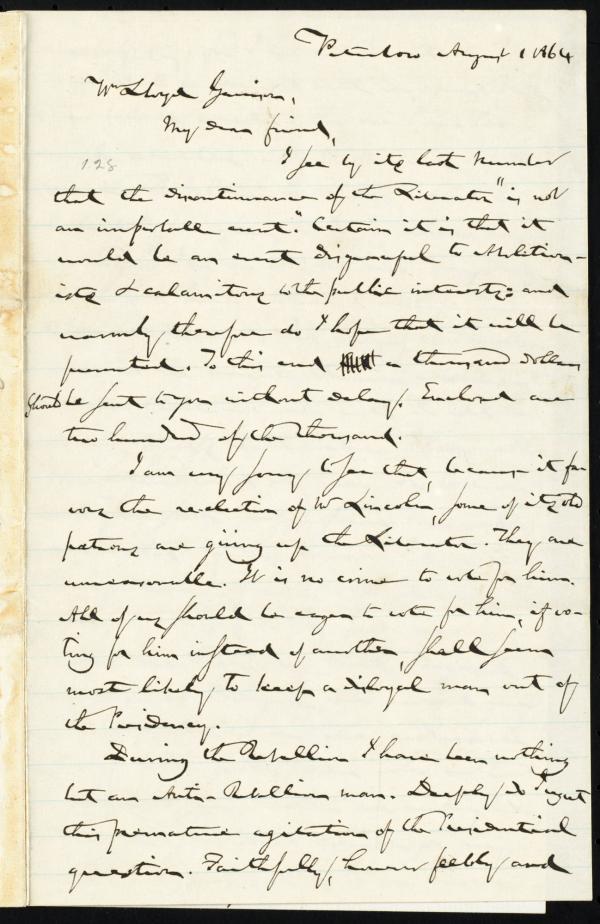 Peterboro August 1 1864
Wm Lloyd Garrison,
My dear friend,
128
I see by its last number
that the discontinuance of the Liberator "is not
an improbable event." Certain it is that it
would be an event disgraceful to Abolition-
ists & calamitous to the public interests: and
warmly, therefore do I hope that it will be
prevented. To this end a thousand dollars
should be sent to you without delay. Enclosed are
two hundred of the thousand.
I am very sorry to see that, because it fa-
vors the re-election of Mr Lincoln, some of its old
patrons are giving up the Liberator. They are
unreasonable. It is no crime to vote for him.
All of us should be eager to vote for him, if vo-
ting for him instead of another, shall seem
most likely to keep a disloyal man out of
the Presidency.
During the Rebellion I have been nothing
but an Anti-Rebellion man. Deeply do I regret
this premature agitation of the Presidential
question. Faithfully, however feebly and